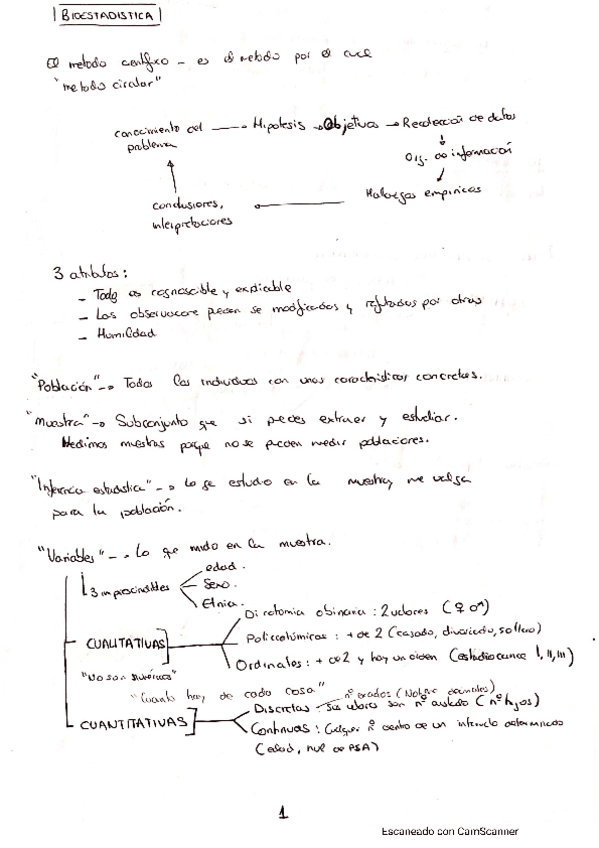 BIOESTADISTICA
El metodo científico - es el metodo por el cual
"metodo circular"
conocimiento del → Hipotesis → Objetivos → Recolección de datos
problema
Org. de información
conclusiones, ← Hallazgos empiricos
interpretaciones
3 atributos:
- Todo es
y explicable
- Las
pueden se modificados y refutados por otros
- Humildad
"Población" → Todos los individuos con unas caracteristicas concretas.
"Muestra" → Subconjunto que si puedes extraer y estudiar.
Medimos muestras porque no se pueden medir poblaciones.
"Inferencia estadistica" → Lo se estudio en la muestra, me valga
para la población.
"Variables" → Lo que mido en la muestra.
3 imprescindibles
edad.
Sexo.
Etnia.
CUALITATIVAS
Dicotomia o binaria: 2 valores (♀ ♂)
Policotómicas: + de 2 (casado, divorciado, soltero)
Ordinales: + de 2 y hay un orden (estadio cancer I, II, III)
"No son numéricas"
"Cuanto hay de cada cosa"
CUANTITATIVAS
nº exactos (No hay decimales)
Discretas - sus valores son nº aislado (nº hijos)
Continuas: Cualquier nº dentro de un intervalo determinado
(edad, nivel de PSA)
1
Escaneado con CamScanner